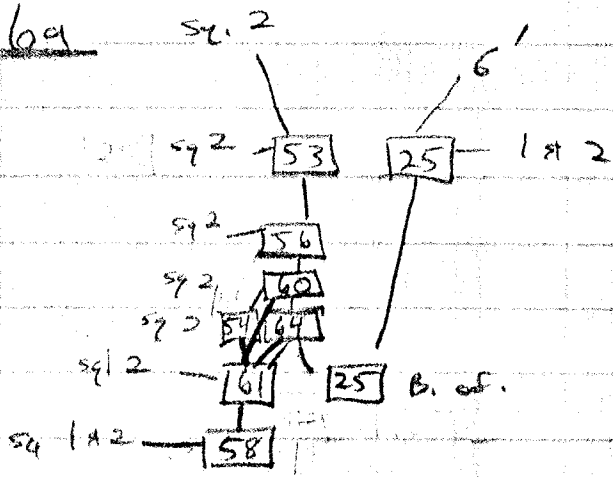 69
sq. 2
6'
sq 2 53 25 1 st 2
sq 2 56
sq 2 60
sq 2 54 64
sq 2 61 25 B. of.
sq 1 st 2 58